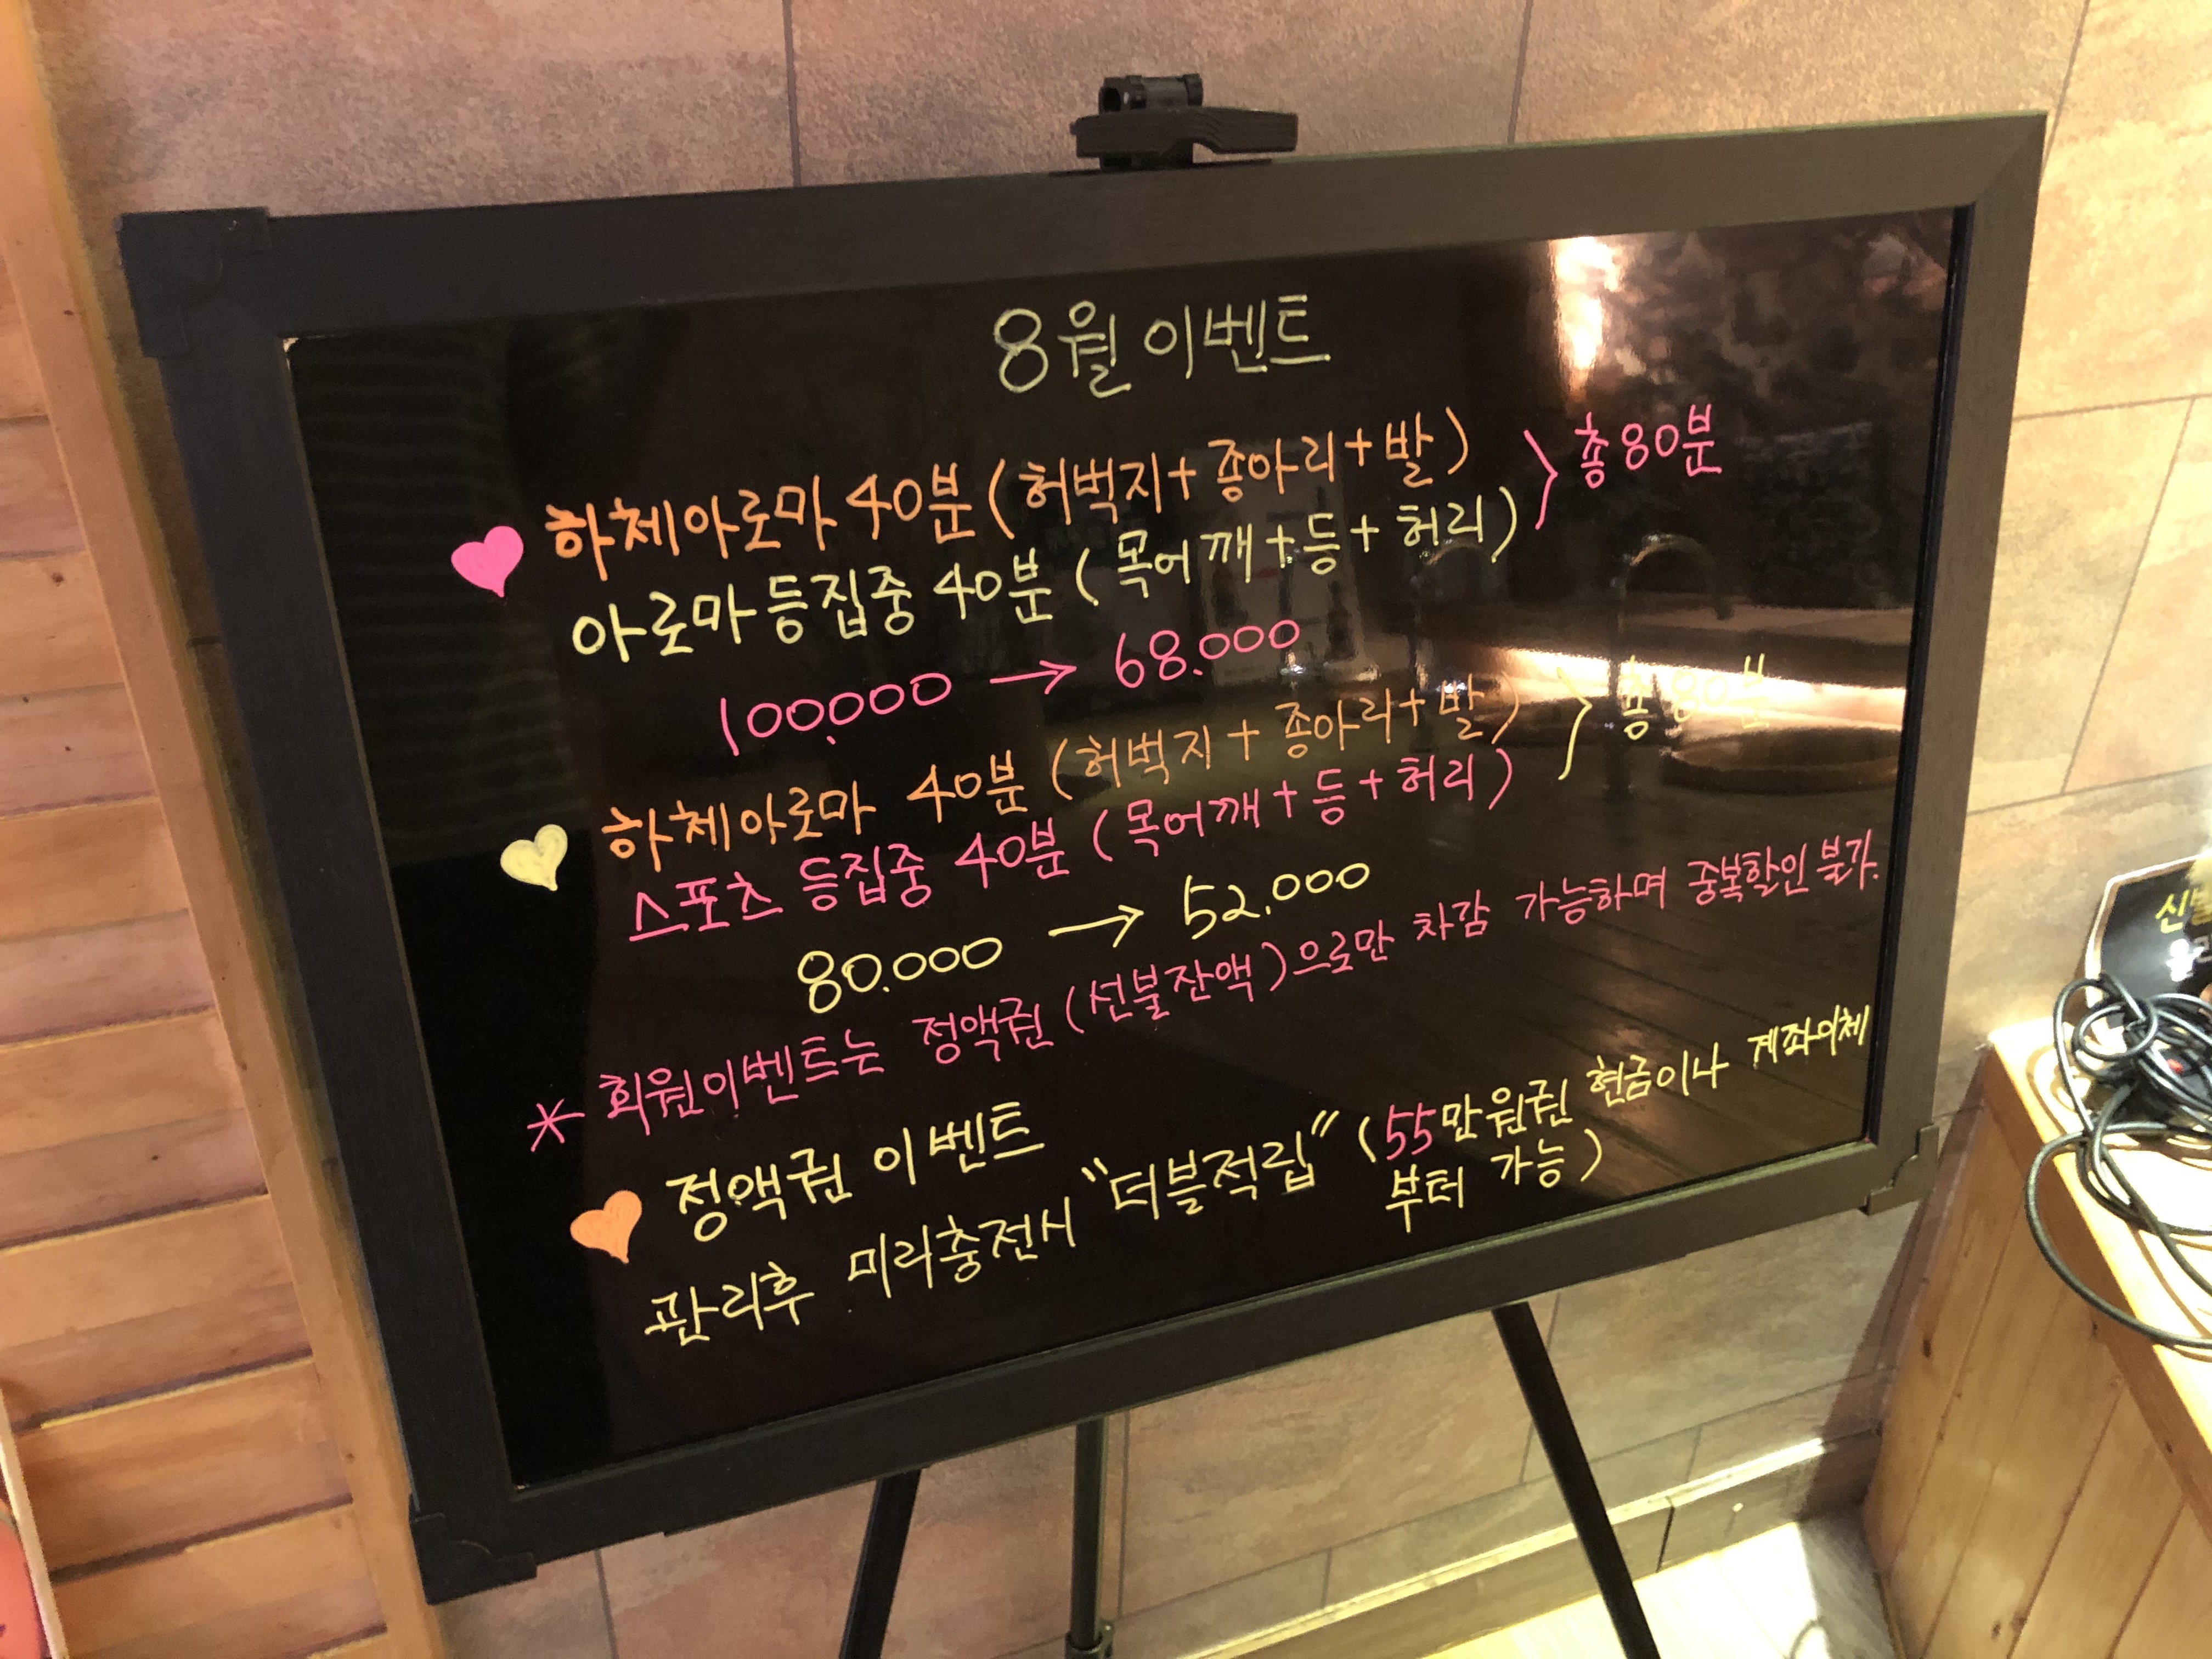 8월 이벤트
하체아로마 40분 (허벅지+종아리+발) } 총80분
아로마등집중 40분 (목어깨+등+허리)
100,000 → 68.000
하체아로마 40분 (허벅지+종아리+발) } 총80분
스포츠 등집중 40분 (목어깨+등+허리)
80.000 → 52,000
* 회원이벤트는 정액권 (선불잔액)으로만 차감 가능하며 중복할인 불가.
정액권 이벤트
관리후 미리충전시 "더블적립" (55만원권 현금이나 계좌이체
부터 가능)